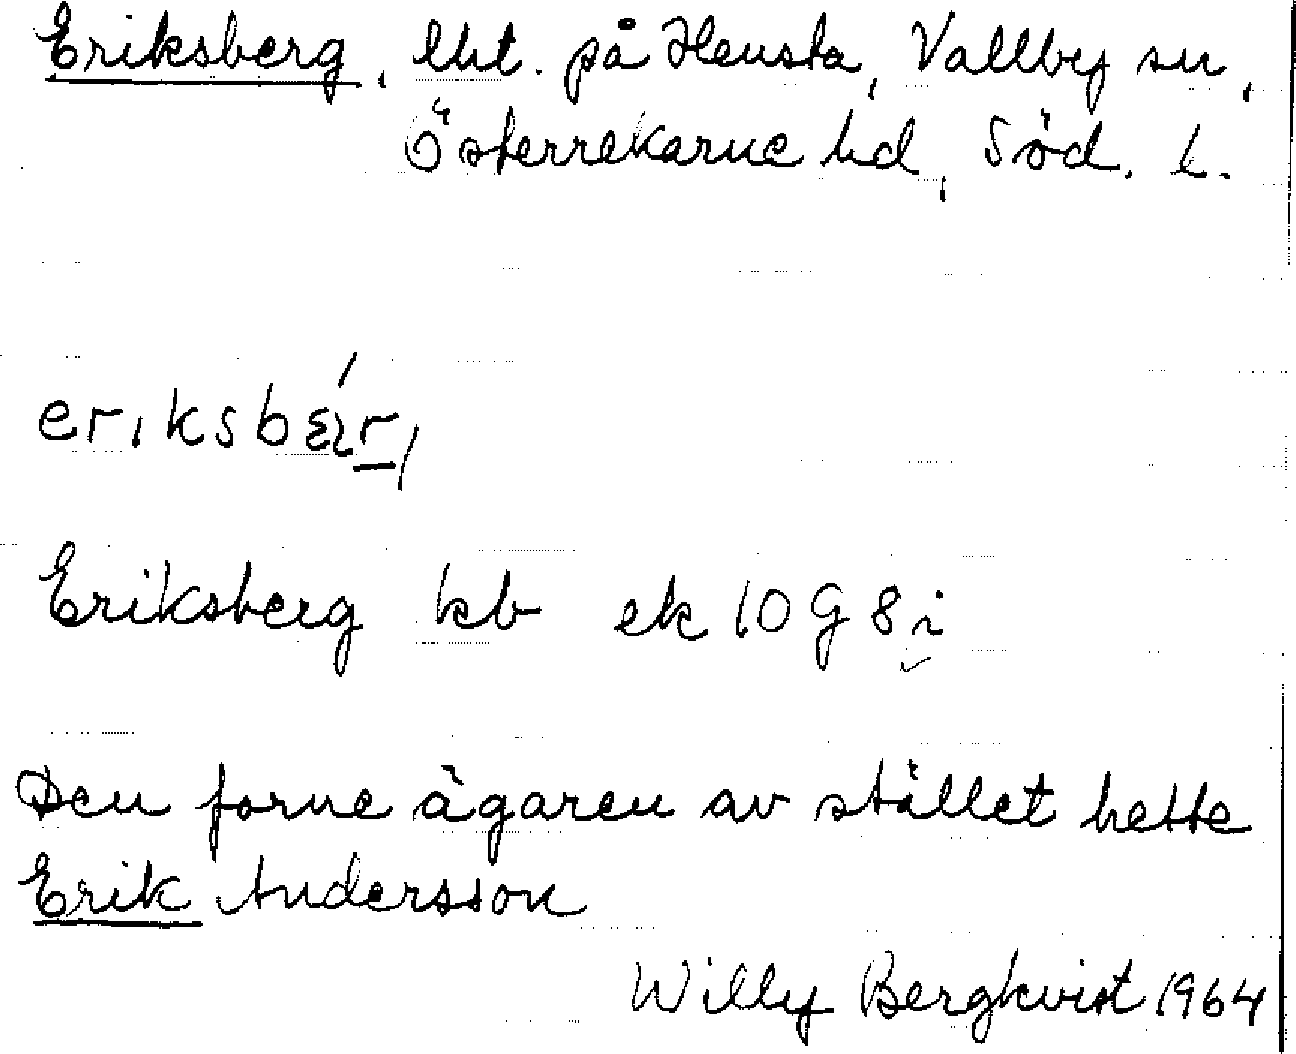 Eriksberg, lht. på Hensta, Vallby sn,
Österrekarne hd, Söd. l.
Eriksberg kb ek 10 G 8 i
Den forne ägaren av stället hette
Erik Andersson
Willy Bergkvist 1964